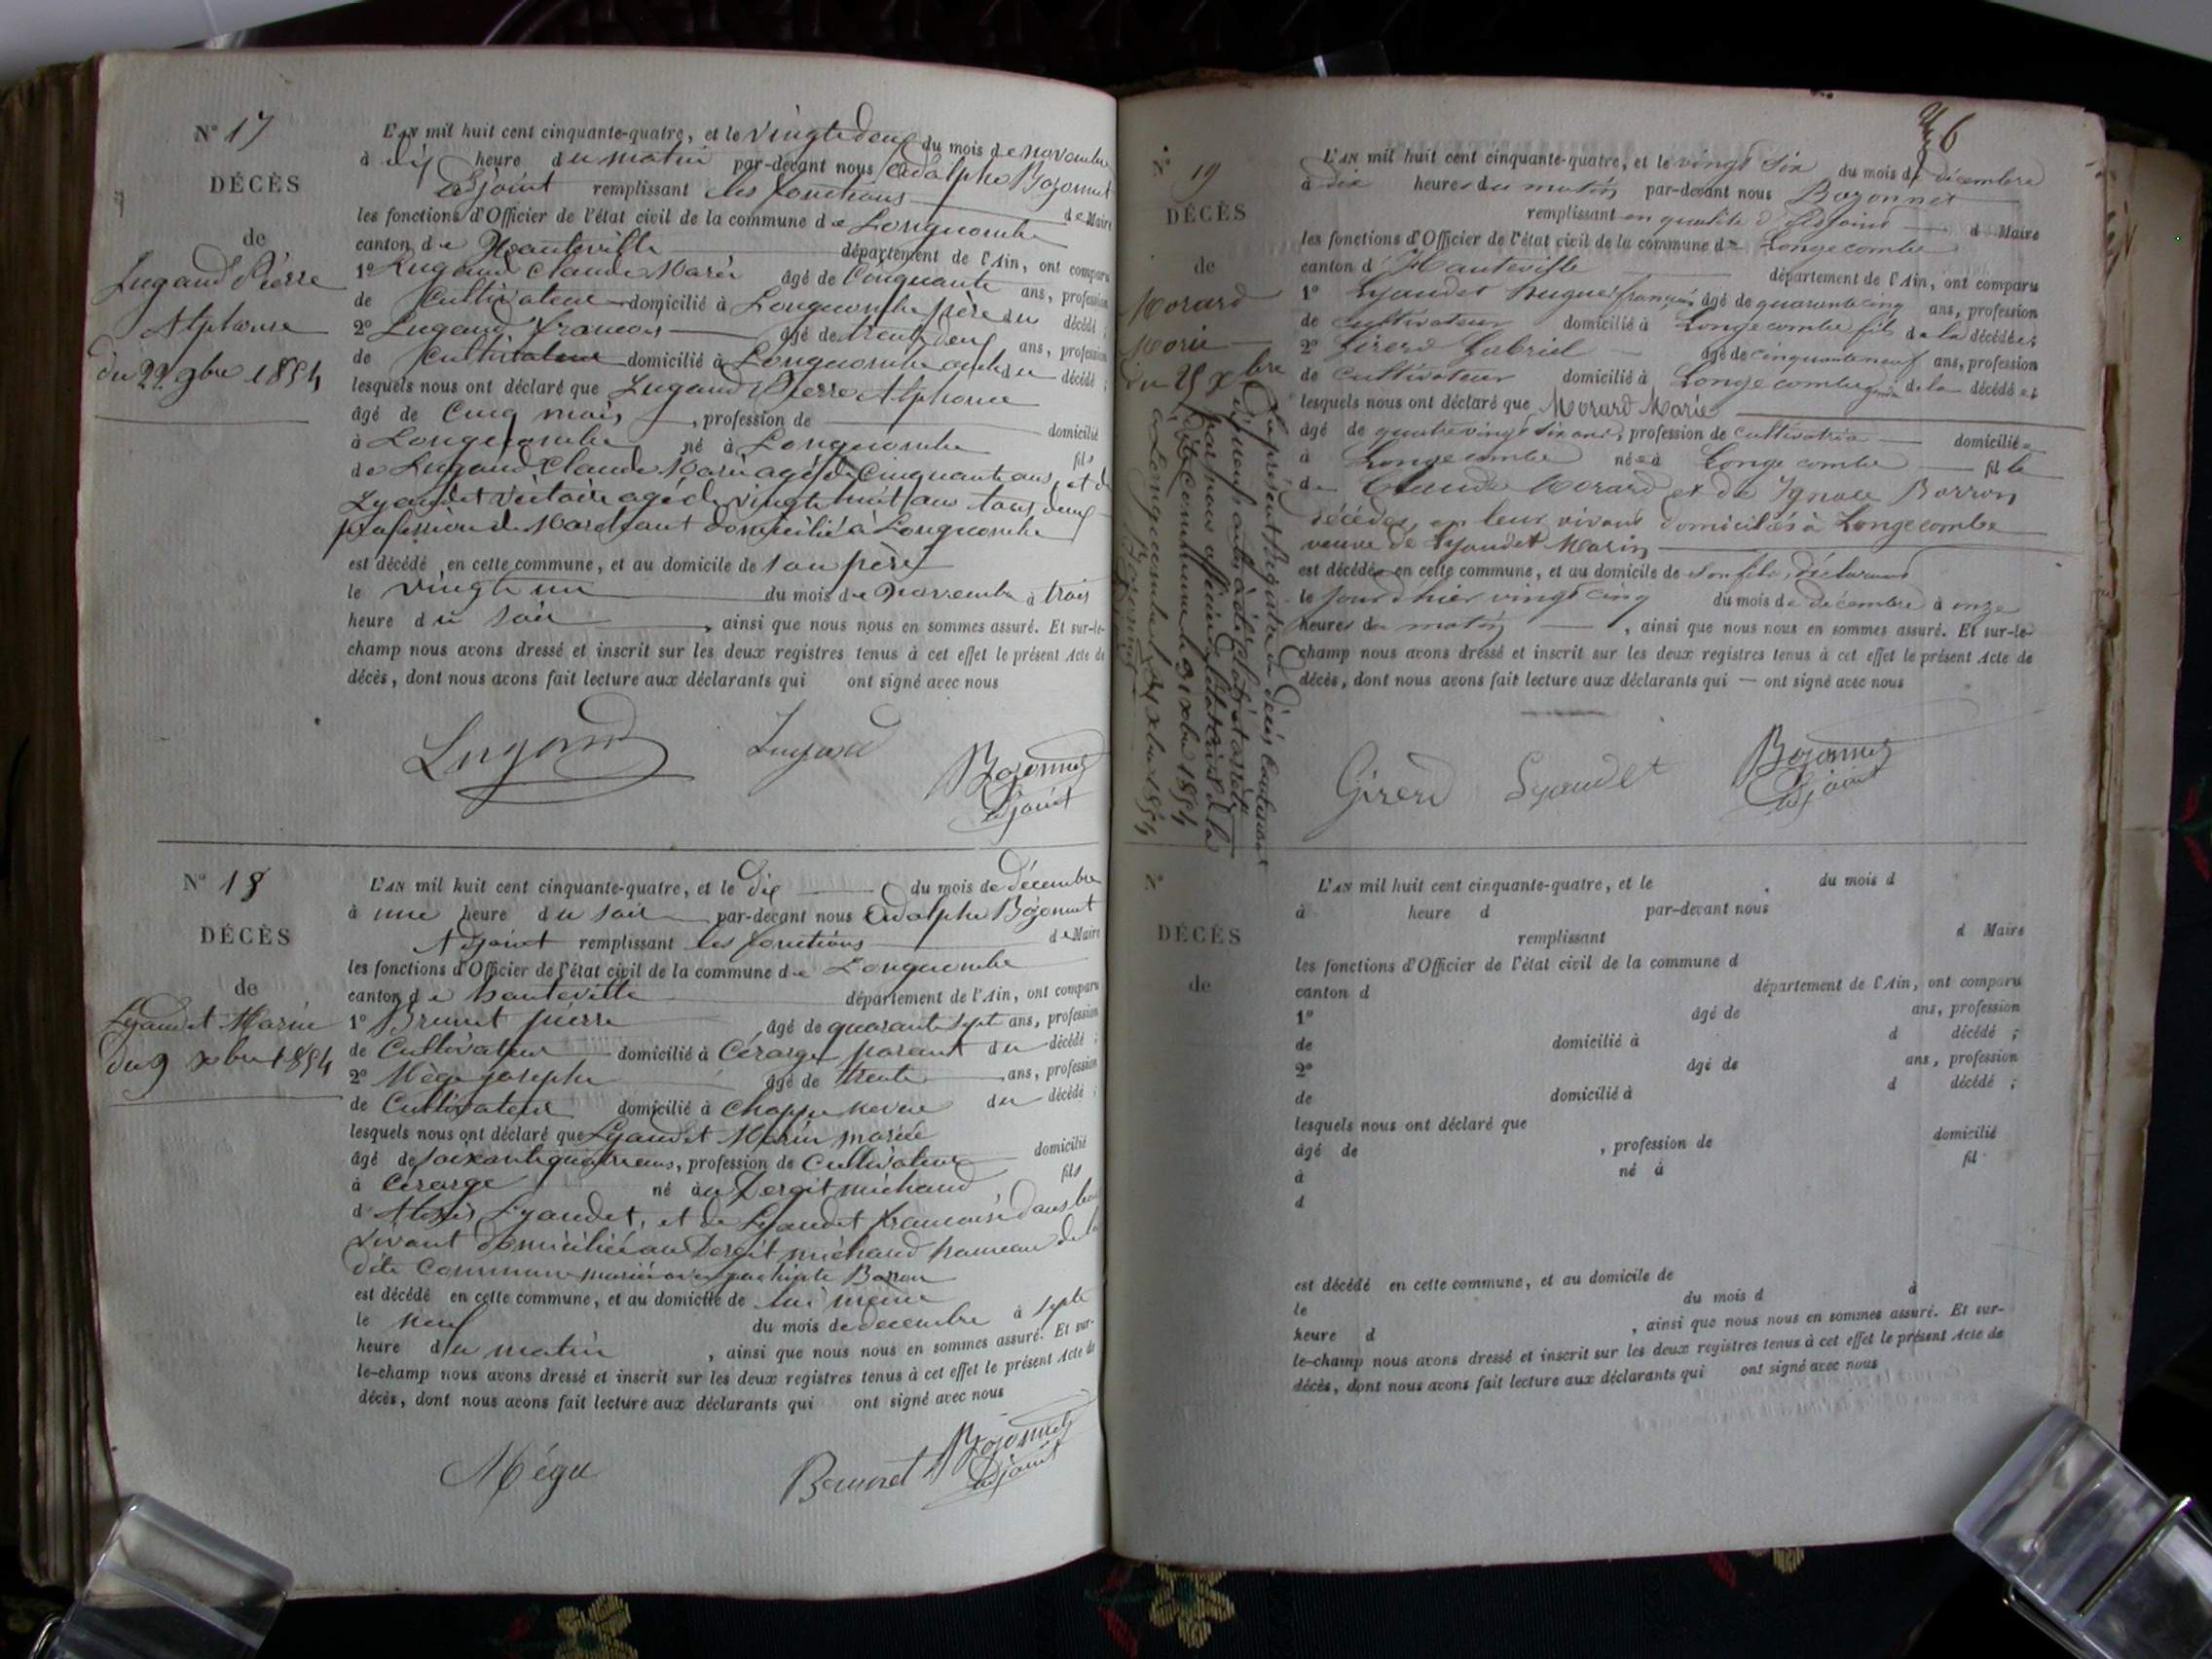 N° 17
DÉCÈS
de
Lugand Pierre
Alphonse
du 22 9bre 1854
L'AN mil huit cent cinquante-quatre, et le vingt deux du mois de novembre
à dix heure du matin par-devant nous Adolphe Bozonnet
adjoint remplissant les fonctions de Maire
les fonctions d'Officier de l'état civil de la commune de Longecombe
canton de Hauteville département de l'Ain, ont comparu
1° Lugand Claude Marie âgé de Cinquante ans, profession
de Cultivateur domicilié à Longecombe père du décédé ;
2° Lugand francois âgé de trente deux ans, profession
de Cultivateur domicilié à Longecombe du décédé ;
lesquels nous ont déclaré que Lugand Pierre Alphonse
âgé de Cinq mois , profession de domicilié
à Longecombe né à Longecombe fils
de Lugand Claude Marie agé de Cinquante ans, et de
Lyaudet agé de vingt huit ans tous deux
profession de Marchant domicilié à Longecombe
est décédé en cette commune, et au domicile de son père
le vingt un du mois de Novembre à trois
heure du soir , ainsi que nous nous en sommes assuré. Et sur-le-
champ nous avons dressé et inscrit sur les deux registres tenus à cet effet le présent Acte de
décès, dont nous avons fait lecture aux déclarants qui ont signé avec nous
Lugand Lugand Bozonnet
adjoint
N° 18
DÉCÈS
de
Lyaudet Marin
du 9 xbre 1854
L'AN mil huit cent cinquante-quatre, et le dix du mois de décembre
à une heure du soir par-devant nous Adolphe Bozonnet
Adjoint remplissant les fonctions de Maire
les fonctions d'Officier de l'état civil de la commune de Longecombe
canton de hauteville département de l'Ain, ont comparu
1° Brunet pierre âgé de quarante sept ans, profession
de Cultivateur domicilié à Cerarge parant du décédé ;
2° Mège josephe âgé de trente ans, profession
de Cultivateur domicilié à neveu du décédé ;
lesquels nous ont déclaré que Lyaudet Marin mariée
âgé de soixante quatre ans, profession de Cultivateur domicilié
à Cerarge né au Dergit michaud fils
d'Alexis Lyaudet, et de Lyaudet francoise dans leur
vivant domiciliée au Dergit michaud hameau de la
dite Commune mariée avec Borron
est décédé en cette commune, et au domicile de lui même
le neuf du mois de decembre à septe
heure du matin , ainsi que nous nous en sommes assuré. Et sur-
le-champ nous avons dressé et inscrit sur les deux registres tenus à cet effet le présent Acte de
décès, dont nous avons fait lecture aux déclarants qui ont signé avec nous
Mège Brunet Bozonnet
adjoint
26
19
DÉCÈS
de
Morard
Marie
du 25 xbre
L'AN mil huit cent cinquante-quatre, et le vingt six du mois de décembre
à dix heures du matin par-devant nous Bozonnet
remplissant en qualité d'adjoint d Maire
les fonctions d'Officier de l'état civil de la commune de Longecombe
canton d'Hauteville département de l'Ain, ont comparu
1° Lyaudet hugue françois âgé de quarante cinq ans, profession
de cultivateur domicilié à Longecombe fils de la décédée;
2° Girerd Gabriel âgé de cinquante neuf ans, profession
de cultivateur domicilié à Longecombe de la décédée;
lesquels nous ont déclaré que Morard Marie
âgé de quatre vingt six ans, profession de cultivatrice domiciliée
à Longecombe née à Longe combe fille
de Claude Morard et de Ignace Borron
décédés, en leur vivant domiciliés à Longecombe
veuve de Lyaudet Marin
est décédée en cette commune, et au domicile de son fils, déclarant
le jour d'hier vingt cinq du mois de décembre à onze
heures du matin , ainsi que nous nous en sommes assuré. Et sur-le-
champ nous avons dressé et inscrit sur les deux registres tenus à cet effet le présent Acte de
décès, dont nous avons fait lecture aux déclarants qui — ont signé avec nous
Girerd Lyaudet Bozonnet
adjoint
Le présent Registre de décès contenant
dixneuf actes, a été clos et arrêté
par nous officier de l'état civil de la
dite commune le 31 xbre 1854
a Longecombe le 31 xbre 1854
Bozonnet
N°
DÉCÈS
de
L'AN mil huit cent cinquante-quatre, et le du mois d
à heure d par-devant nous
remplissant d Maire
les fonctions d'Officier de l'état civil de la commune d
canton d département de l'Ain, ont comparu
1° âgé de ans, profession
de domicilié à d décédé ;
2° âgé de ans, profession
de domicilié à d décédé ;
lesquels nous ont déclaré que
âgé de , profession de domicilié
à né à fil
d
est décédé en cette commune, et au domicile de
le du mois d à
heure d , ainsi que nous nous en sommes assuré. Et sur-
le-champ nous avons dressé et inscrit sur les deux registres tenus à cet effet le présent Acte de
décès, dont nous avons fait lecture aux déclarants qui ont signé avec nous